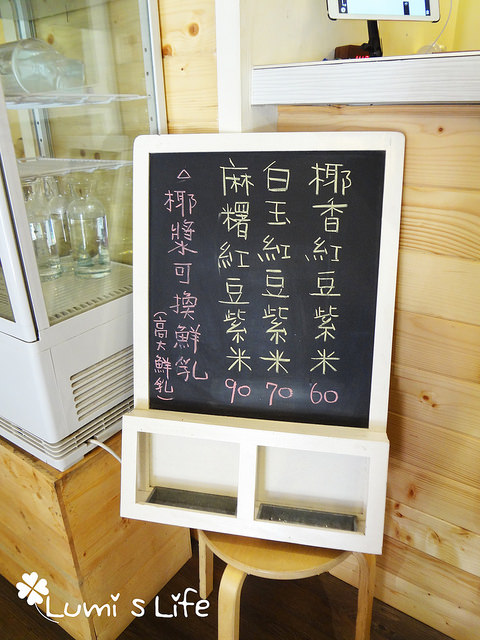 椰香紅豆紫米 60
白玉紅豆紫米 70
麻糬紅豆紫米 90
△椰漿可換鮮乳
(高大鮮乳)
Lumi's Life